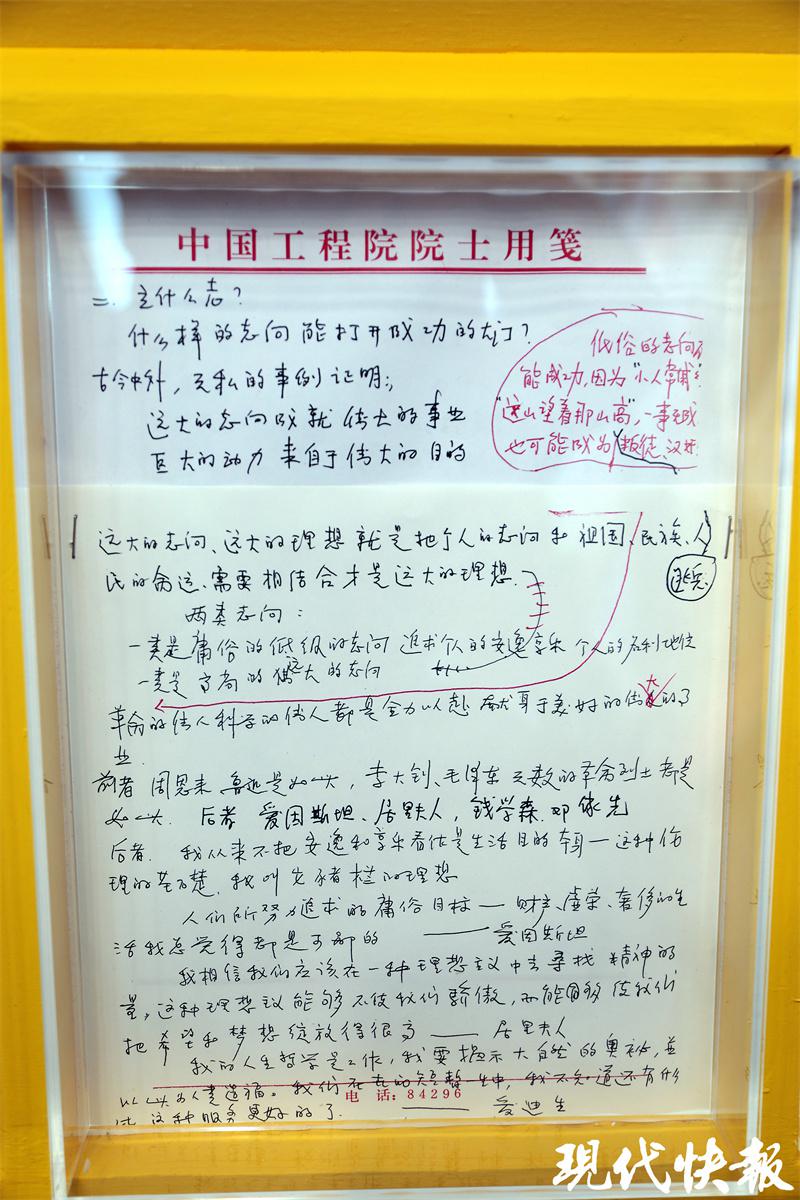 中国工程院院士用笺
二. 立什么志?
什么样的志向能打开成功的大门?
古今中外,无私的事例证明:
远大的志向成就伟大的事业
巨大的动力来自于伟大的目的
低俗的志向不
能成功,因为"小人常戚
"这山望着那山高",一事无成
也可能成为叛徒、汉奸
远大的志向、远大的理想就是把个人的志向和祖国、民族、人
民的命运、需要相结合才是远大的理想.
两类志向:
一类是庸俗的低级的志向 追求个人的安逸享乐 个人的名利地位
一类是高尚的远大的志向
革命的伟人科学的伟人都是全力以赴 献身于美好的伟大的事
业.
前者 周恩来 鲁迅是如此,李大钊、毛泽东 无数的革命烈士都是
如此. 后者 爱因斯坦、居里夫人,钱学森.邓稼先
后者. 我从来不把安逸和享乐看作是生活目的本身—这种伦
理的基础,我叫它猪栏的理想
人们所努力追求的庸俗目标—财产、虚荣、奢侈的生
活我总觉得都是可鄙的 ——爱因斯坦
我相信我们应该在一种理想主义中去寻找精神的
量,这种理想主义能够不使我们骄傲,而能够使我们
把希望和梦想绽放得很高 —— 居里夫人
我的人生哲学是工作,我要揭示大自然的奥秘,并
以此为人类造福。我们在世的短暂一生中,我不知道还有什
么比这种服务更好的了. —— 爱迪生
电 话:84296
现代快报